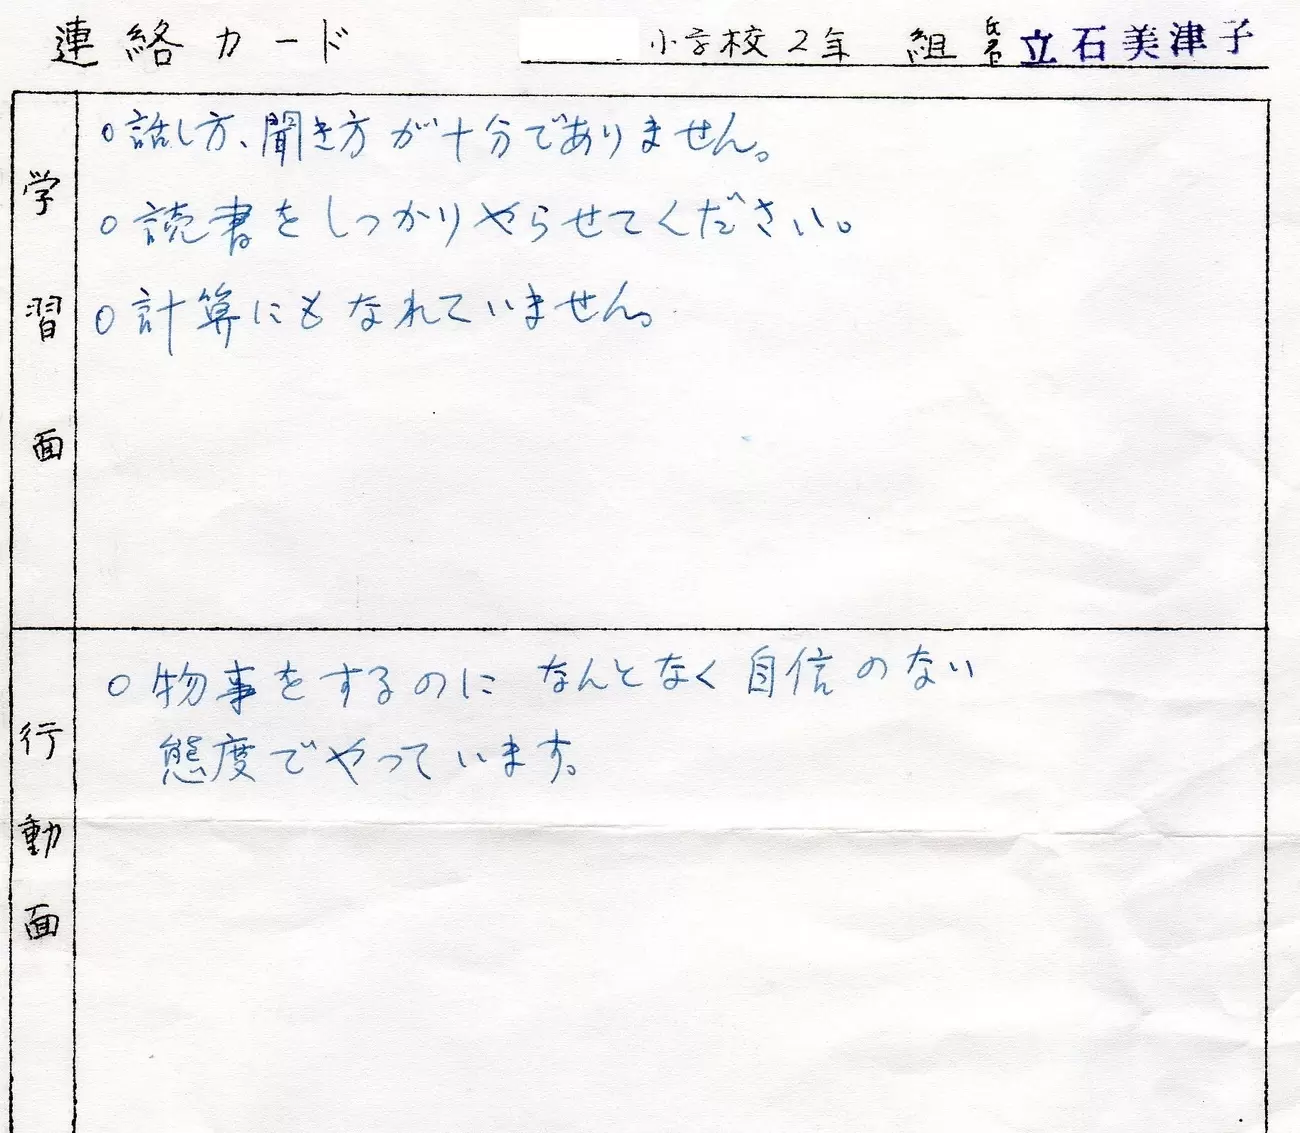 連絡カード 小学校2年 組 氏名 立石美津子
学習面
○話し方、聞き方が十分でありません。
○読書をしっかりやらせてください。
○計算にもなれていません。
行動面
○物事をするのになんとなく自信のない
態度でやっています。